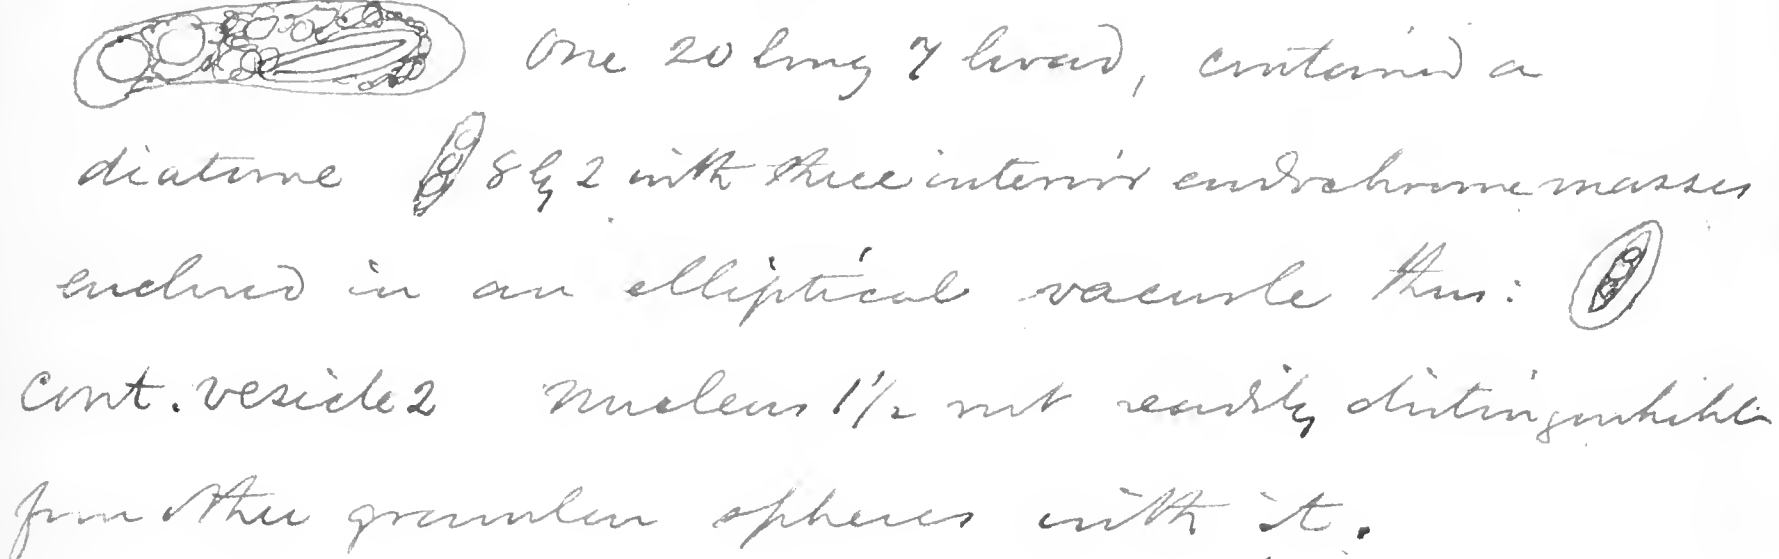 One 20 long 7 broad, contained a
diatome 8 by 2 with three interior endochrome masses
enclosed in an elliptical vacuole thus:
Cont. vesicle 2 Nucleus 1 1/2 not readily distinguishible
from other granular spheres with it.